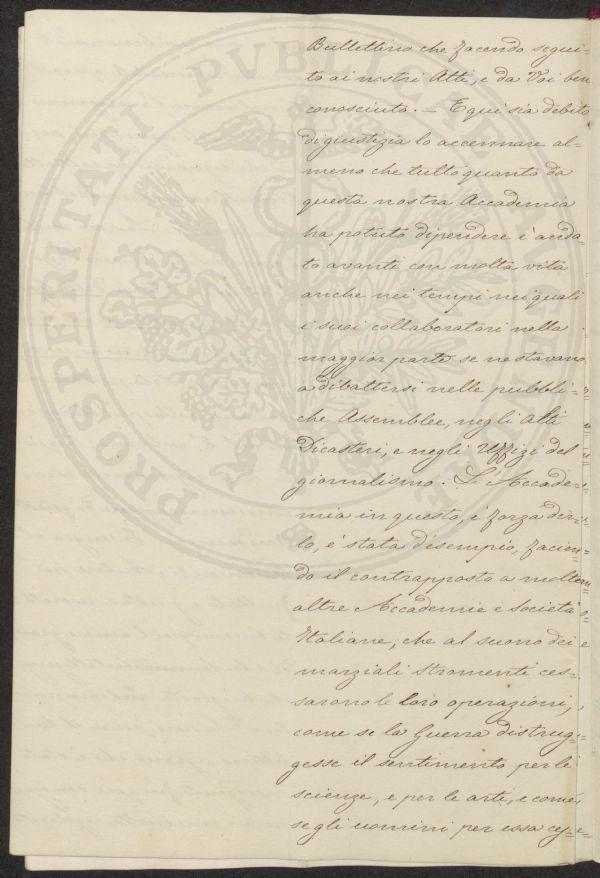 Bullettino che facendo segui=
to ai nostri Atti, e da Voi ben
conosciuto. — E qui sia debito
di giustizia lo accennare al=
meno che tutto quanto da
questa nostra Accademia
ha potuto dipendere è anda=
to avanti con molta vita
anche nei tempi nei quali
i suoi collaboratori nella
maggior parte se ne stavano
a dibattersi nelle pubbli=
che Assemblee, negli Alti
Dicasteri, e negli Uffizi del
giornalismo. L'Accade=
mia in questo, è forza dir=
lo, è stata d'esempio, facien=
do il contrapposto a molte
altre Accademie e Società
Italiane, che al suono dei
marziali stromenti ces=
sarono le loro operazioni,
come se la Guerra distrug=
gesse il sentimento per le
scienze, e per le arti, e come
se gli uomini per essa ces=
PROSPERITATI PVBLICAE